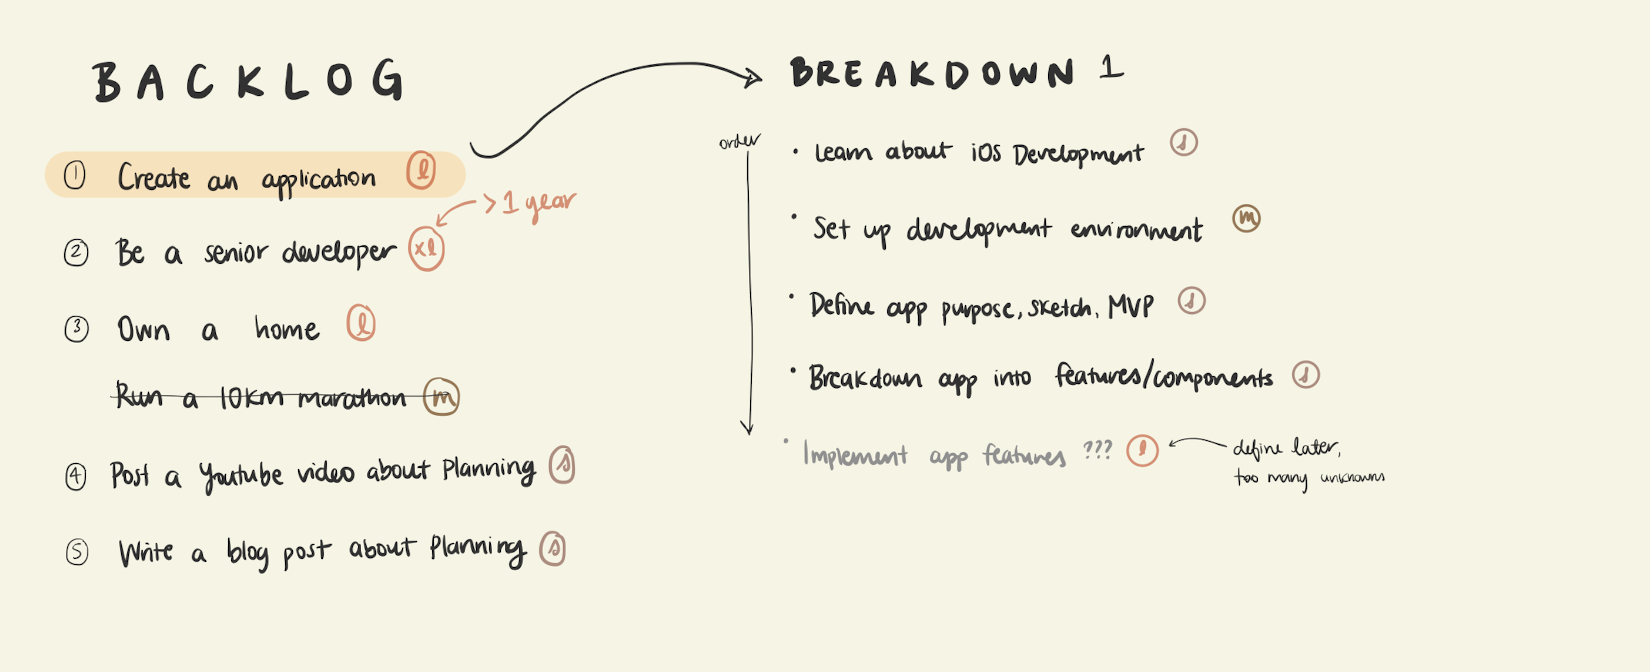 BACKLOG
① Create an application l
> 1 year
② Be a senior developer xl
③ Own a home l
Run a 10km marathon m
④ Post a Youtube video about Planning s
⑤ Write a blog post about Planning s
BREAKDOWN 1
order
• Learn about iOS Development s
• Set up development environment m
• Define app purpose, sketch, MVP s
• Breakdown app into features/components s
• Implement app features ??? l
define later,
too many unknowns